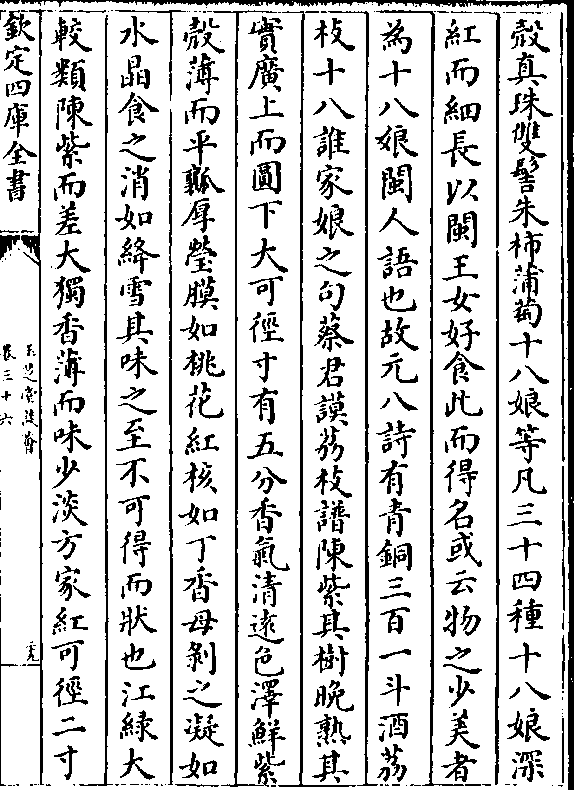 殼真珠雙髻朱柿蒲萄十八娘等凡三十四種十八娘深
紅而細長以閩王女好食此而得名或云物之少美者
為十八娘閩人語也故元八詩有青銅三百一斗酒荔
枝十八誰家娘之句蔡君謨荔枝譜陳紫其樹晚熟其
實廣上而圓下大可徑寸有五分香氣清逺色澤鮮紫
殼薄而平瓤厚瑩膜如桃花紅核如丁香母剝之凝如
水晶食之消如絳雪其味之至不可得而狀也江綠大
較類陳紫而差大獨香薄而味少淡方家紅可徑二寸
欽定四庫全書
玉芝堂談薈
卷三十六